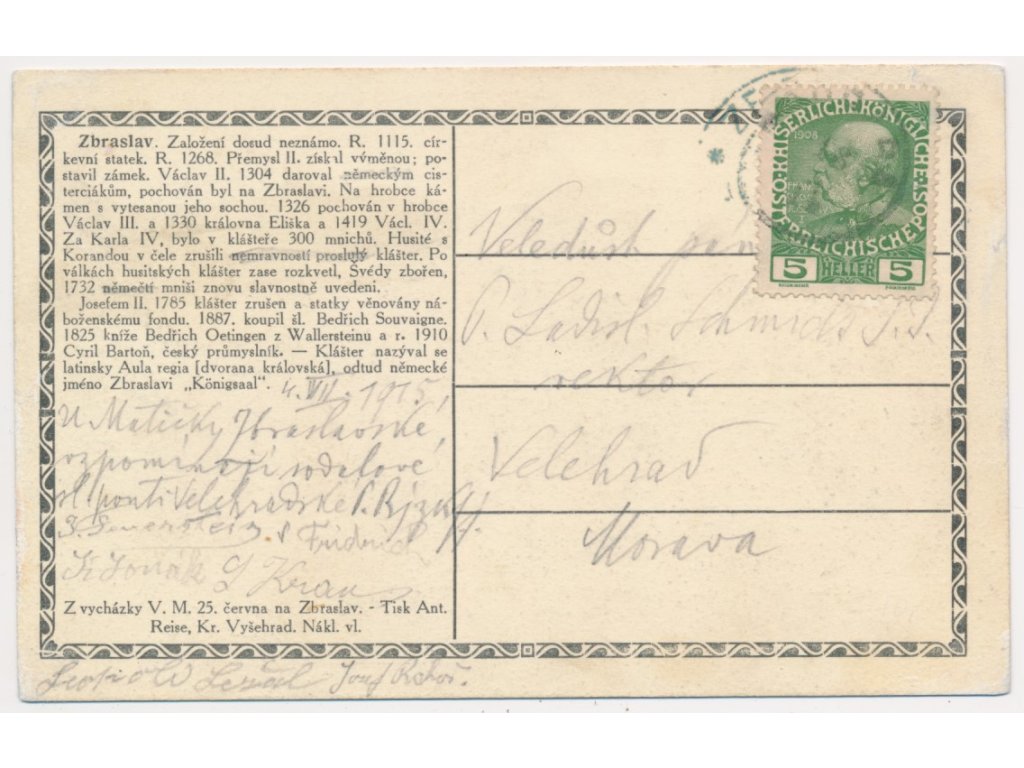 Zbraslav. Založení dosud neznámo. R. 1115. cír-
kevní statek. R. 1268. Přemysl II. získal výměnou; po-
stavil zámek. Václav II. 1304 daroval německým cis-
terciákům, pochován byl na Zbraslavi. Na hrobce ká-
men s vytesanou jeho sochou. 1326 pochován v hrobce
Václav III. a 1330 královna Eliška a 1419 Václ. IV.
Za Karla IV, bylo v klášteře 300 mnichů. Husité s
Korandou v čele zrušili nemravností proslulý klášter. Po
válkách husitských klášter zase rozkvetl, Švédy zbořen,
1732 němečtí mniši znovu slavnostně uvedeni.
Josefem II. 1785 klášter zrušen a statky věnovány ná-
boženskému fondu. 1887. koupil šl. Bedřich Souvaigne.
1825 kníže Bedřich Oetingen z Wallersteinu a r. 1910
Cyril Bartoň, český průmyslník. — Klášter nazýval se
latinsky Aula regia [dvorana královská], odtud německé
jméno Zbraslavi „Königsaal".
4. VII. 1915,
U Matičky Zbraslavské,
vzpomínají sodalové
sl. pouti Velehradské P. Rjzek
Fridrich
J. Kraus
Z vycházky V. M. 25. června na Zbraslav. - Tisk Ant.
Reise, Kr. Vyšehrad. Nákl. vl.
Leopold Josef
KAISERLICHE KÖNIGLICHE
1908
ÖSTERREICHISCHE POST
5 HELLER 5
Veledůst pan
P. Ladisl. Schmidt S.J.
rektor
Velehrad
Morava